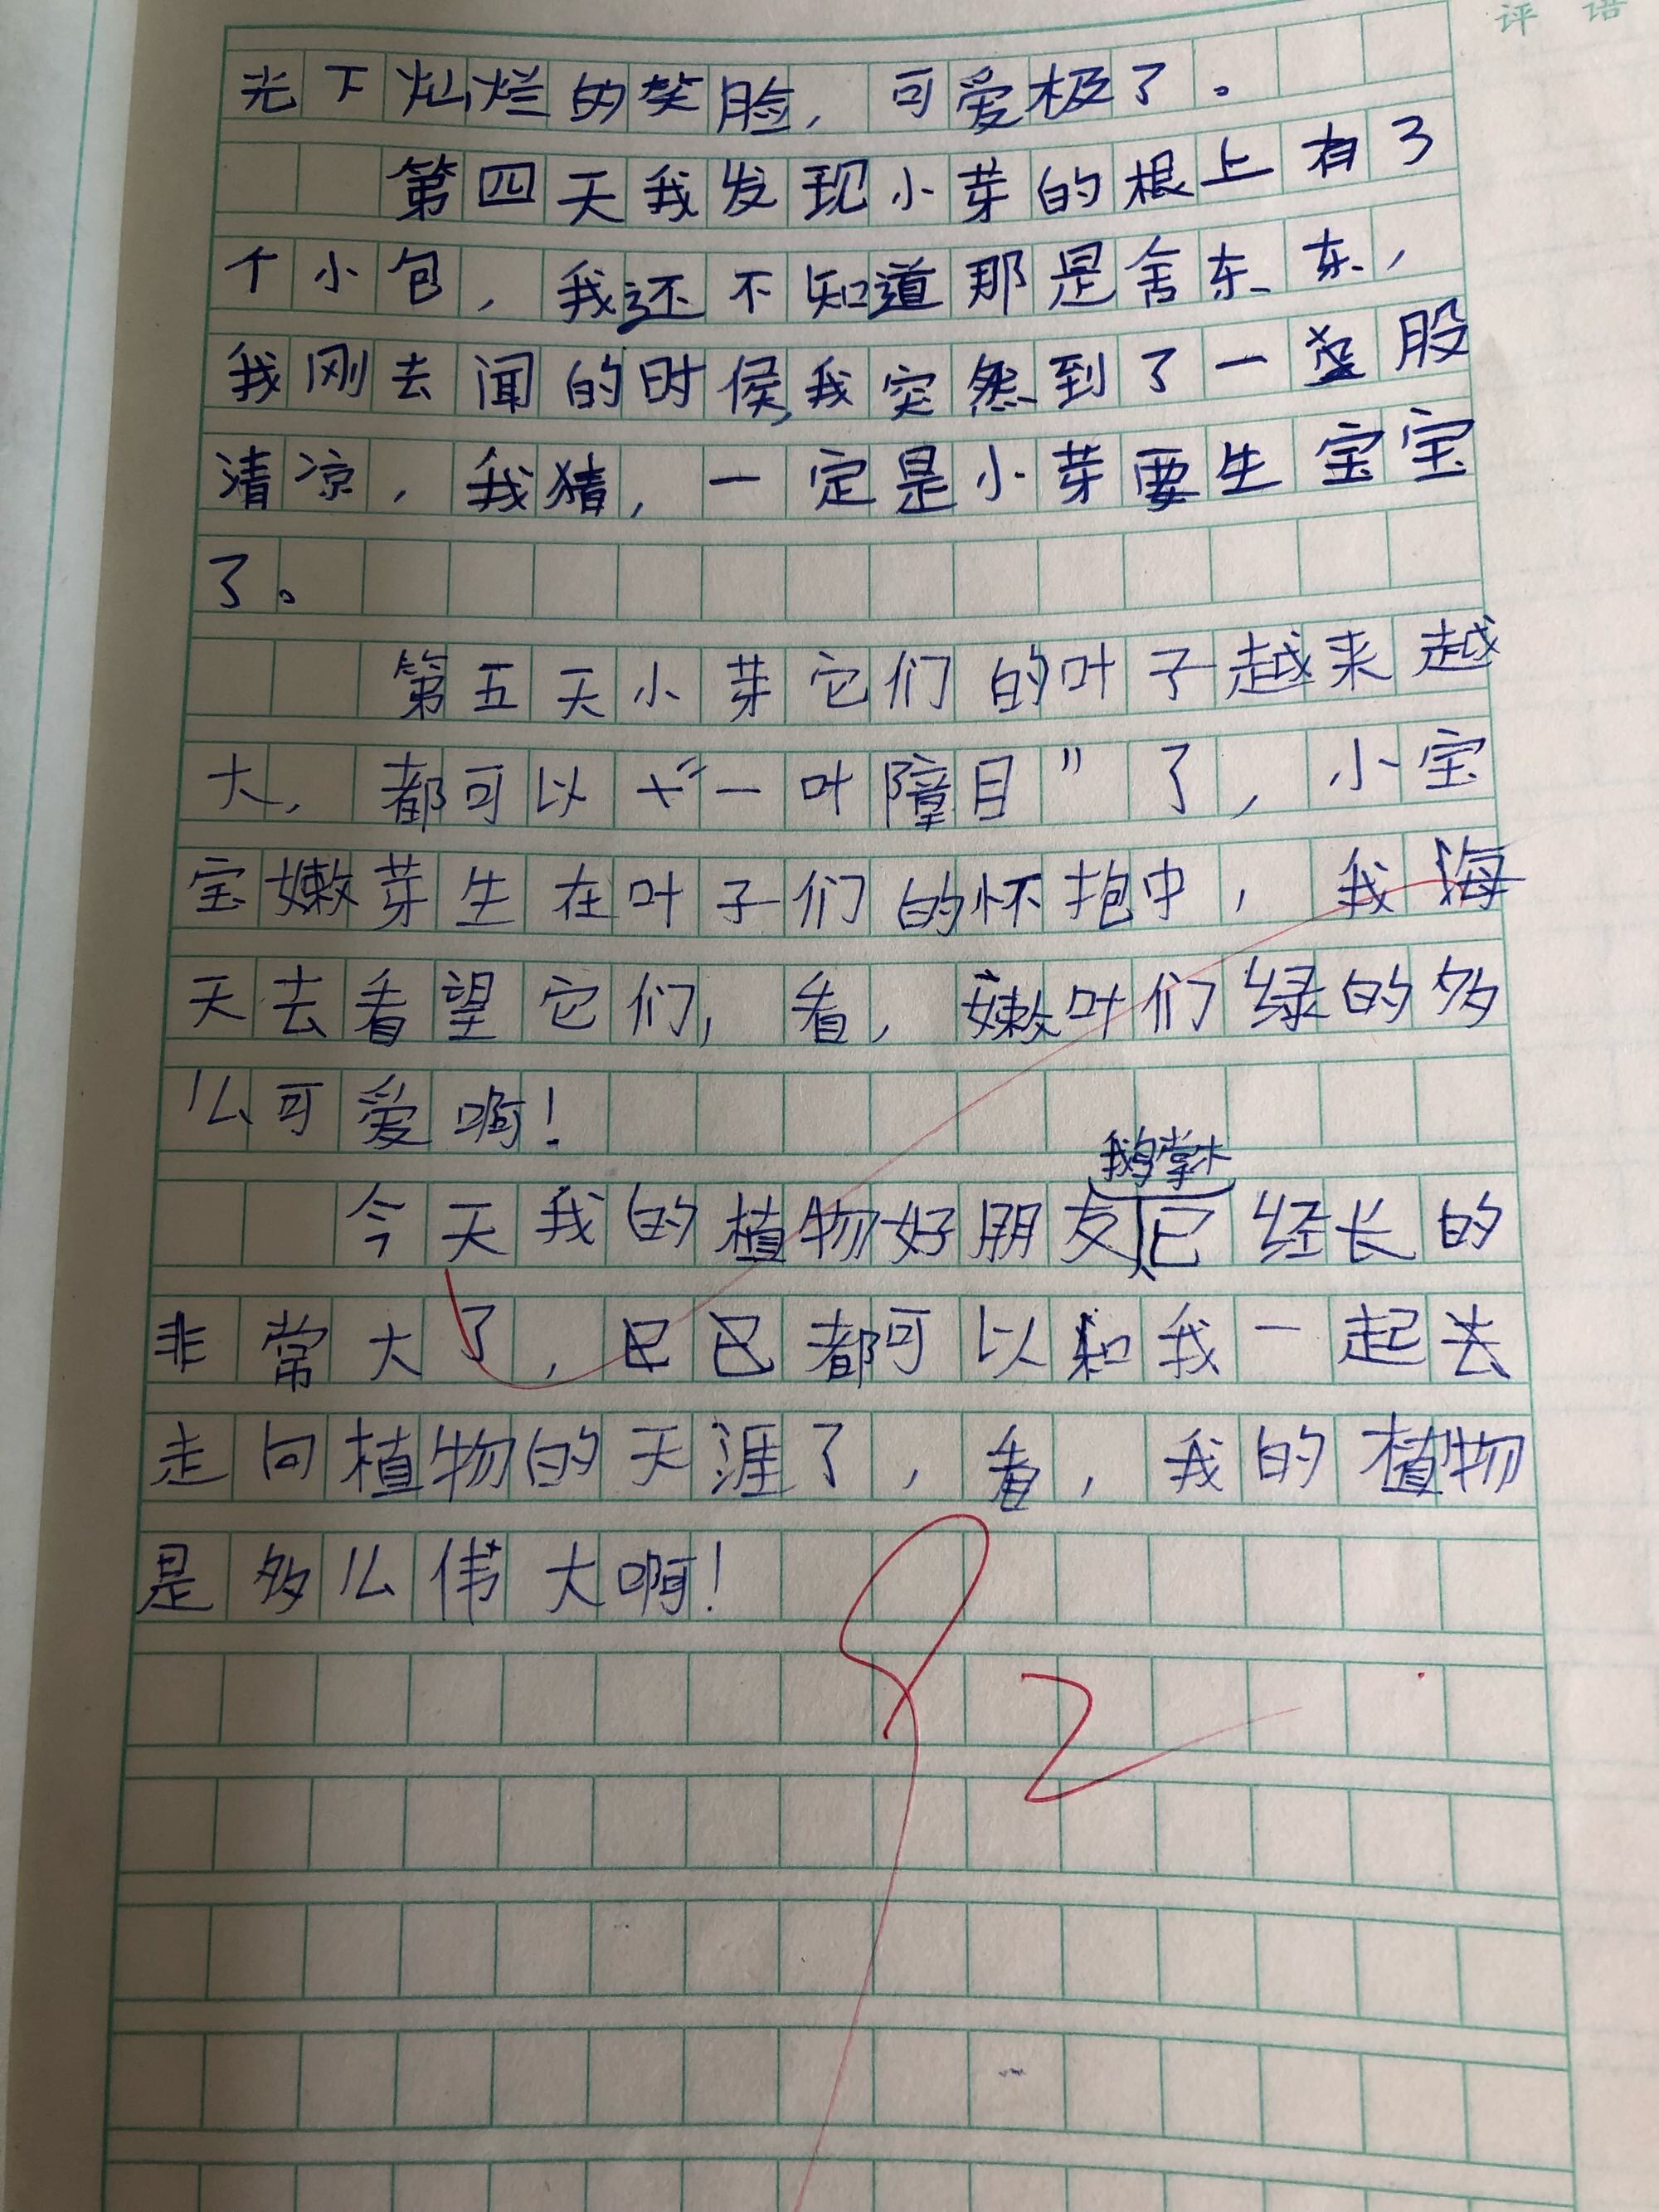 评 语
光下灿烂的笑脸，可爱极了。
第四天我发现小芽的根上有了
个小包，我还不知道那是舍东东，
我刚去闻的时侯，我突然到了一股
清凉，我猜，一定是小芽要生宝宝
了。
第五天小芽它们的叶子越来越
大，都可以“一叶障目”了，小宝
宝嫩芽生在叶子们的怀抱中，我海
天去看望它们，看，嫩叶们绿的多
么可爱啊！
鹅掌木
今天我的植物好朋友已经长的
非常大了，已都可以和我一起去
走向植物的天涯了，看，我的植物
是多么伟大啊！
92